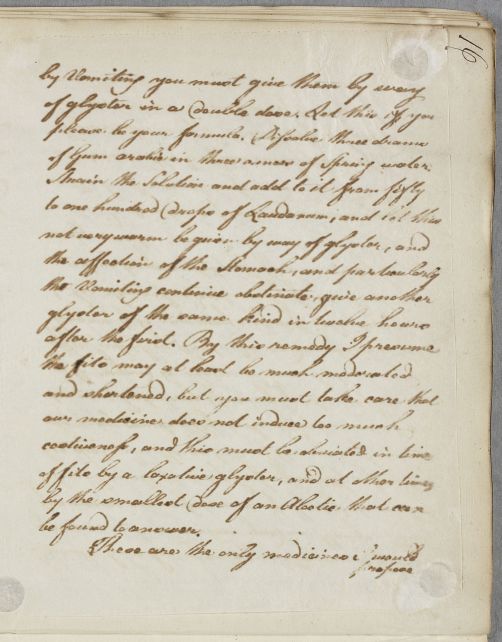 91
by Vomiting you must give them by way
of glyster in a double dose. Let this if you
please be your formula. Dissolve three drams
of Gum arabic in three ounces of Spring water.
Strain the Solution and add to it from fifty
to one hundred drops of Laudanum, and let this
not very warm be given by way of glyster, and
the affection of the Stomach, and particularly
the Vomiting continue obstinate, give another
glyster of the same kind in twelve hours
after the first. By this remedy I presume
the fits may at least be much moderated
and shortened, but you must take care that
our medicine does not induce too much
costiveness, and this must be obviated in time
of fits by a laxative glyster, and at other times
by the smallest dose of an Aloetic that can
be found to answer.
These are the only medicines I would
propose